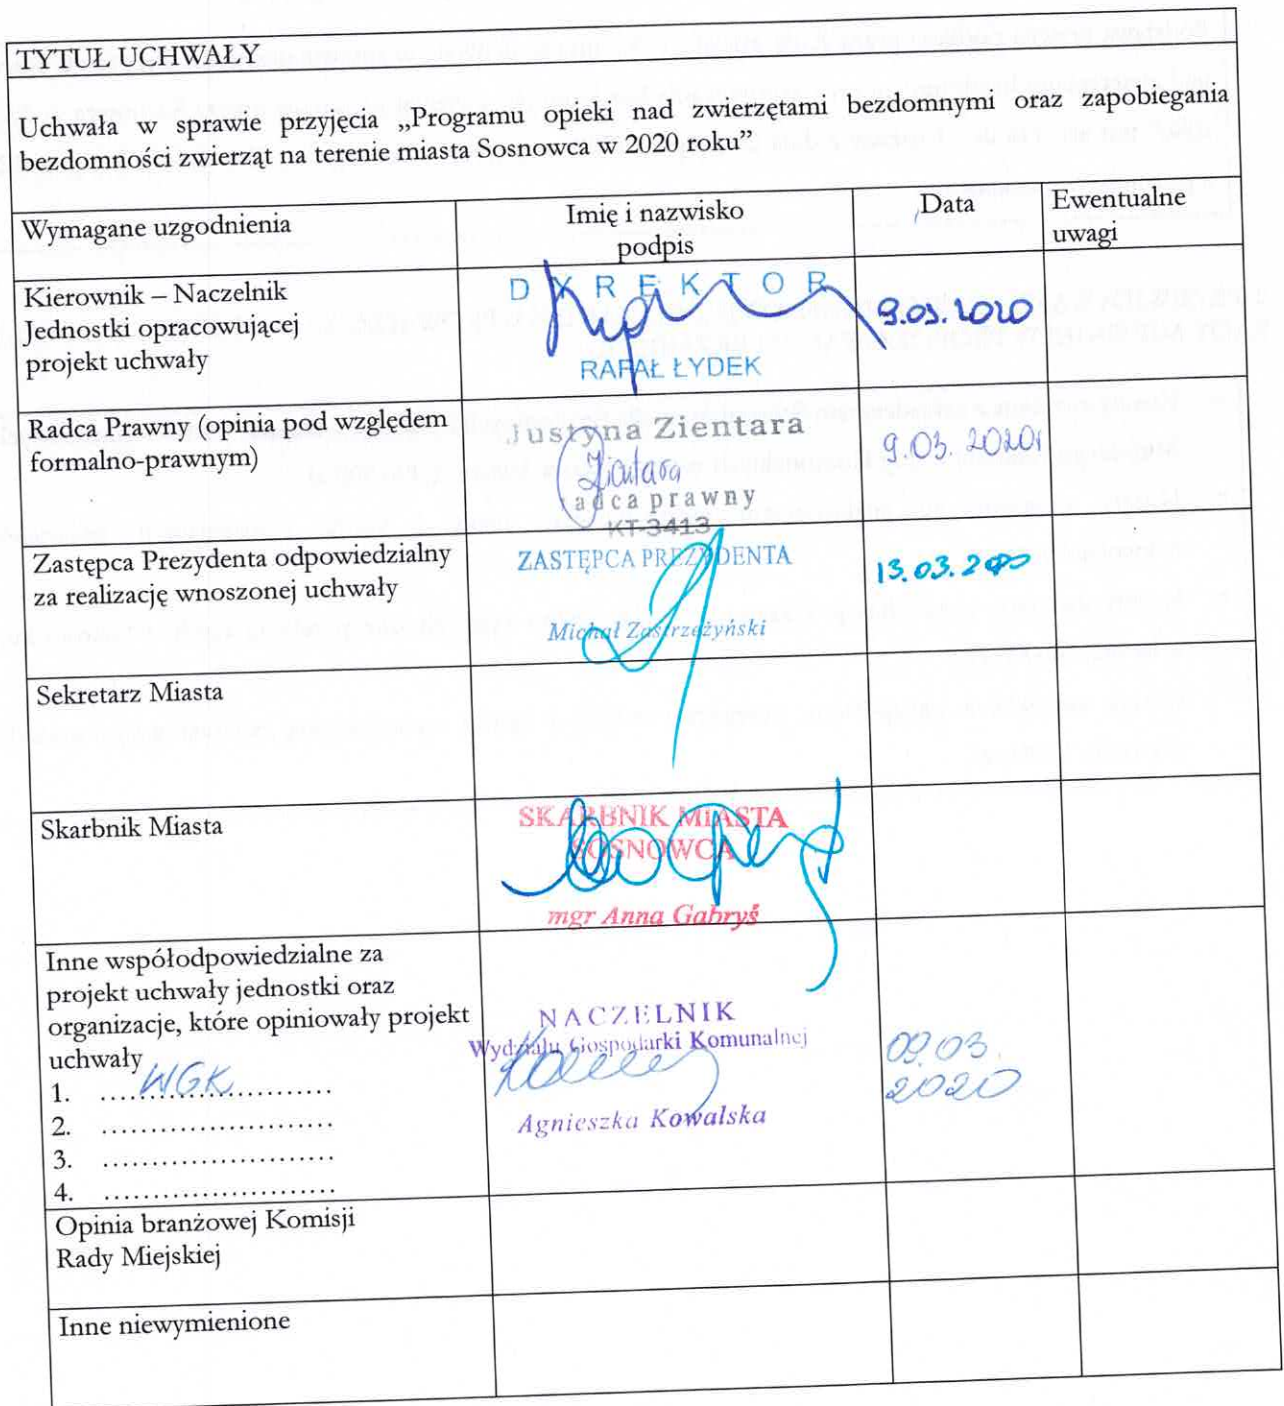 TYTUŁ UCHWAŁY
Uchwała w sprawie przyjęcia „Programu opieki nad zwierzętami bezdomnymi oraz zapobiegania
bezdomności zwierząt na terenie miasta Sosnowca w 2020 roku”
Wymagane uzgodnienia
Imię i nazwisko
podpis
Data
Ewentualne
uwagi
Kierownik – Naczelnik
Jednostki opracowującej
projekt uchwały
DYREKTOR
RAFAŁ ŁYDEK
9.03.2020
Radca Prawny (opinia pod względem
formalno-prawnym)
Justyna Zientara
Zientara
radca prawny
KT-3413
9.03.2020r
Zastępca Prezydenta odpowiedzialny
za realizację wnoszonej uchwały
ZASTĘPCA PREZYDENTA
Michał Zastrzeżyński
13.03.2020
Sekretarz Miasta
Skarbnik Miasta
SKARBNIK MIASTA
SOSNOWCA
mgr Anna Gabryś
Inne współodpowiedzialne za
projekt uchwały jednostki oraz
organizacje, które opiniowały projekt
uchwały
1. WGK
2. ........................
3. ........................
4. ........................
NACZELNIK
Wydziału Gospodarki Komunalnej
Agnieszka Kowalska
09.03.
2020
Opinia branżowej Komisji
Rady Miejskiej
Inne niewymienione